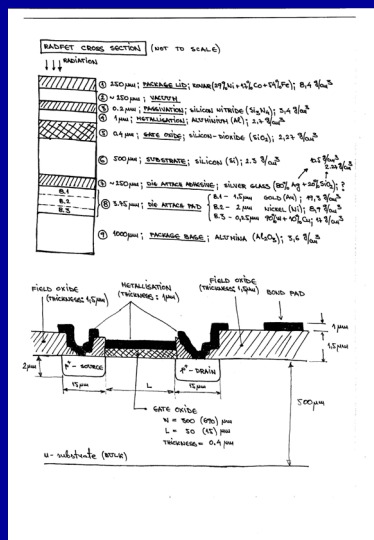 RADFET CROSS SECTION (NOT TO SCALE)
RADIATION
① 250μm; PACKAGE LID; KOVAR(29%Ni+17%Co+54%Fe); 8,4 g/cm³
② ~250μm; VACUUM
③ 0.2μm; PASSIVATION; SILICON NITRIDE (Si₃N₄); 3,4 g/cm³
④ 1μm; METALISATION; ALUMINIUM (Al); 2,7 g/cm³
⑤ 0.4μm; GATE OXIDE; SILICON-DIOXIDE (SiO₂); 2,27 g/cm³
⑥ 500μm; SUBSTRATE; SILICON (Si); 2.3 g/cm³
10.5 g/cm³
2.27 g/cm³
⑦ ~250μm; DIE ATTACH ADHESIVE; SILVER GLASS (80% Ag + 20% SiO₂); ?
8.1
8.2
8.3
⑧ 3.75μm; DIE ATTACH PAD
8.1 - 1,5μm GOLD (Au); 19,3 g/cm³
8.2 - 2μm NICKEL (Ni); 8,9 g/cm³
8.3 - 0,25μm 90%W + 10%Cu; 17 g/cm³
⑨ 1000μm; PACKAGE BASE; ALUMINA (Al₂O₃); 3,6 g/cm³
FIELD OXIDE
(THICKNESS: 1,5μm)
METALISATION
(THICKNESS: 1μm)
FIELD OXIDE
(THICKNESS: 1,5μm)
BOND PAD
1μm
1,5μm
2μm
p⁺ - SOURCE
p⁺ - DRAIN
15μm
L
15μm
500μm
GATE OXIDE
W = 300 (690) μm
L = 50 (15) μm
THICKNESS = 0.4 μm
n - substrate (BULK)